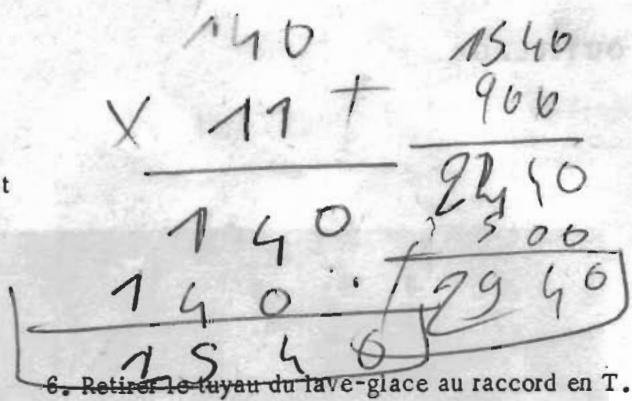 140
x 11
140
140.
1540
1540
+ 900
2440
500
2940
t
6. Retirer le tuyau du lave-glace au raccord en T.